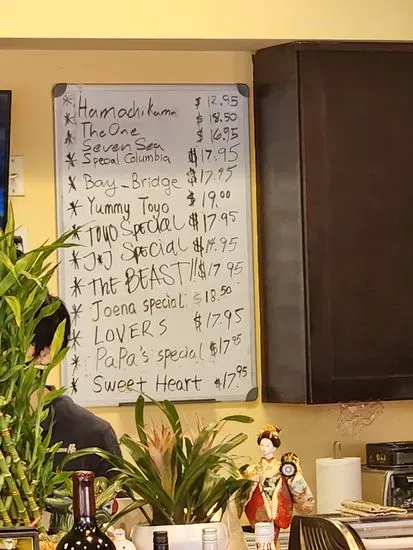 * Hamachi Kama $12.95
* The One $18.50
* Seven Sea $16.95
* Special Columbia $17.95
* Bay-Bridge $17.95
* Yummy Toyo $19.00
* Toyo Special $17.95
* J&J Special $14.95
* The BEAST!! $17.95
* Joena special $18.50
* LOVERS $17.95
* PaPa's special $17.95
* Sweet Heart $17.95